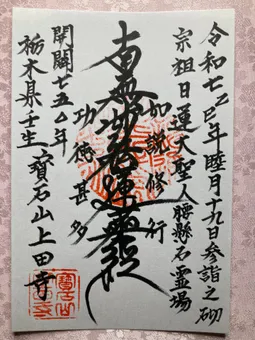 令和七乙巳年睦月十九日参詣之砌
宗祖日蓮大聖人腰懸石霊場
如説修行
南無妙法蓮華経
功徳甚多
開闢七五〇年
栃木県壬生、寳石山上田寺